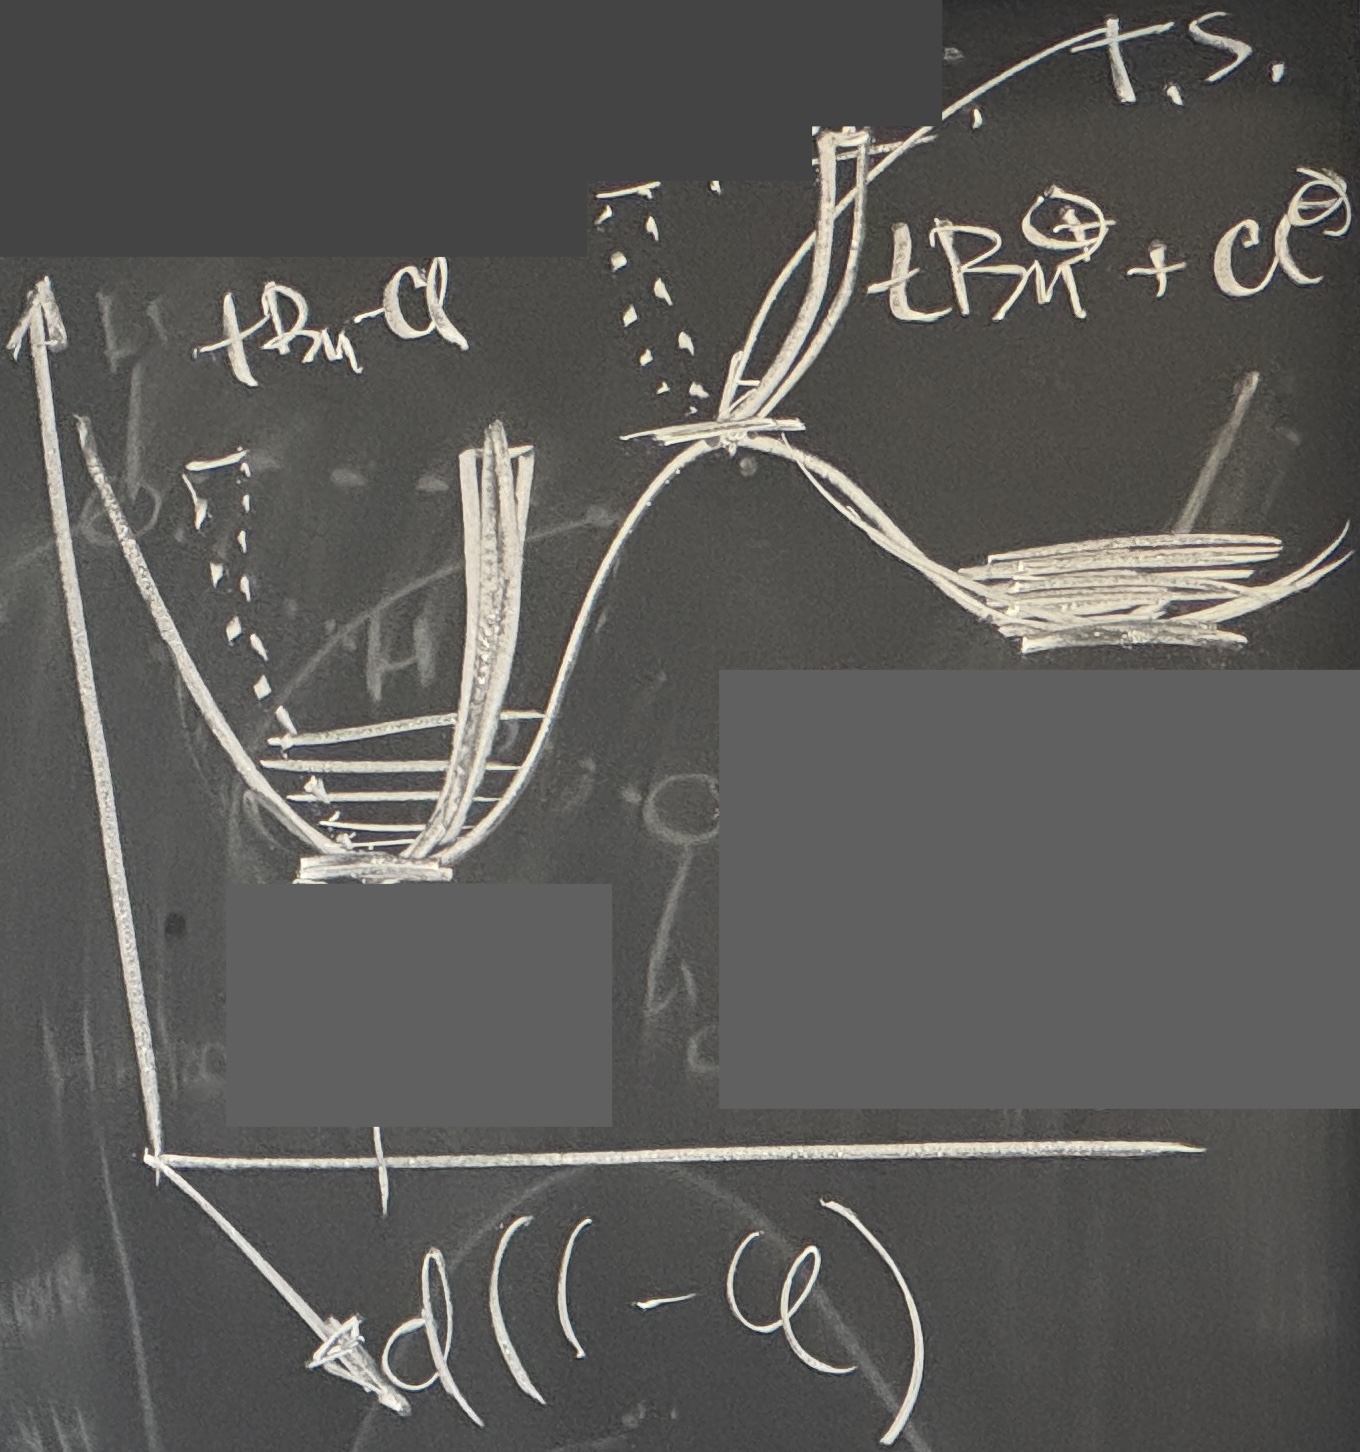 T.S.
tBu⊕ + Cl⊖
tBu-Cl
H
d(C-Cl)